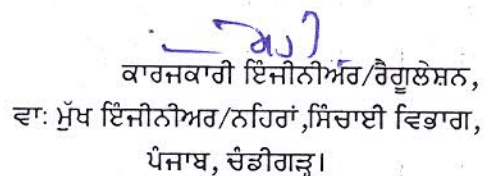 ਕਾਰਜਕਾਰੀ ਇੰਜੀਨੀਅਰ/ਰੈਗੂਲੇਸ਼ਨ,
ਵਾ: ਮੁੱਖ ਇੰਜੀਨੀਅਰ/ਨਹਿਰਾਂ,ਸਿੰਚਾਈ ਵਿਭਾਗ,
ਪੰਜਾਬ, ਚੰਡੀਗੜ੍ਹ।